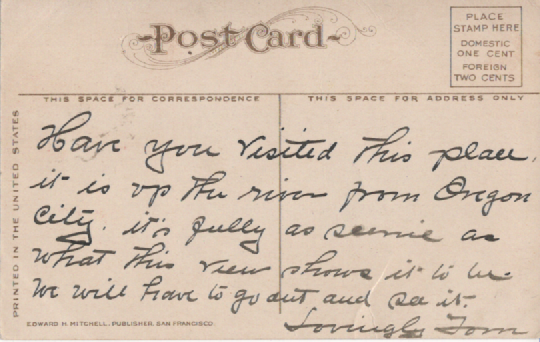 Post Card
PLACE
STAMP HERE
DOMESTIC
ONE CENT
FOREIGN
TWO CENTS
THIS SPACE FOR CORRESPONDENCE
THIS SPACE FOR ADDRESS ONLY
PRINTED IN THE UNITED STATES
Have you visited this place,
it is up the river from Oregon
City. it's fully as scenic as
what this view shows it to be.
We will have to go out and see it.
Lovingly Tom
EDWARD H. MITCHELL, PUBLISHER, SAN FRANCISCO.